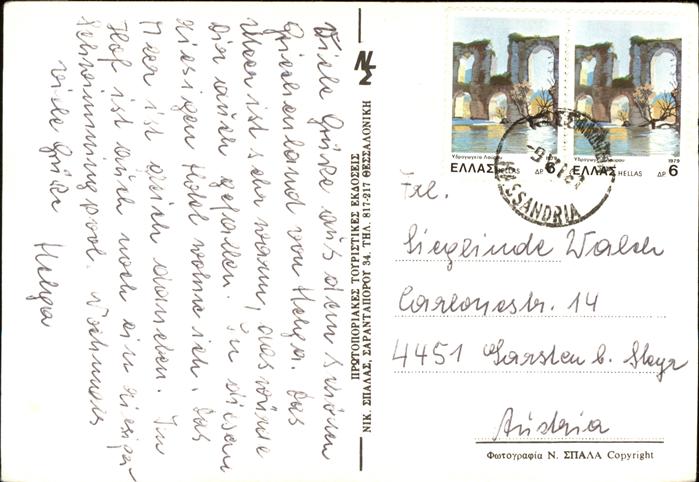 Viele Grüße aus dem schönen
Griechenland von Helga. Das
Meer ist sehr warm, das würde
Dir auch gefallen. In diesem
riesigen Hotel wohne ich. Das
Meer ist gleich daneben. Im
Hof ist auch noch ein riesiger
Schwimmingpool. Nochmals
viele Grüße Helga
ΝΣ
ΠΡΩΤΟΠΟΡΙΑΚΕΣ ΤΟΥΡΙΣΤΙΚΕΣ ΕΚΔΟΣΕΙΣ
ΝΙΚ. ΣΠΑΛΑΣ, ΣΑΡΑΝΤΑΠΟΡΟΥ 34, ΤΗΛ. 817-217 ΘΕΣΣΑΛΟΝΙΚΗ
Υδραγωγείο Λούρου
1979
ΕΛΛΑΣ HELLAS ΔΡ 6
Υδραγωγείο Λούρου
1979
ΕΛΛΑΣ HELLAS ΔΡ 6
SSANDRIA
Frl.
Sieglinde Walch
Carlonestr. 14
4451 Garsten b. Steyr
Austria
Φωτογραφία Ν. ΣΠΑΛΑ Copyright